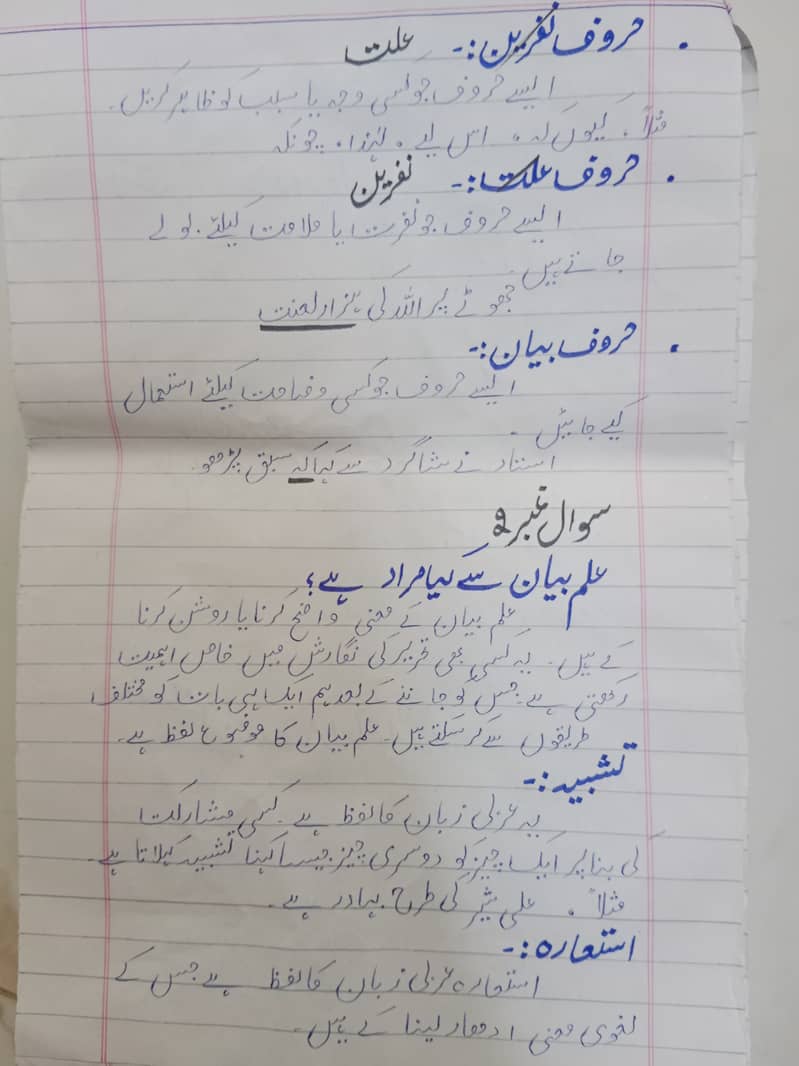 حروف نفرین:- علت
ایسے حروف جو کسی وجہ یا سبب کو ظاہر کریں۔
مثلاً، کیوں کہ، اس لیے، لہٰذا، چونکہ
حروف علت:- نفرین
ایسے حروف جو نفرت یا ملامت کیلئے بولے
جاتے ہیں۔
جھوٹے پر اللہ کی ہزار لعنت
حروف بیان:-
ایسے حروف جو کسی وضاحت کیلئے استعمال
کیے جائیں۔
استاد نے شاگرد سے کہا کہ سبق پڑھو۔
سوال نمبر 9
علم بیان سے کیا مراد ہے؟
علم بیان کے معنی واضح کرنا یا روشن کرنا
کے ہیں۔ یہ کسی بھی تحریر کی نگارش میں خاص اہمیت
رکھتی ہے۔ جس کو جاننے کے بعد ہم ایک ہی بات کو مختلف
طریقوں سے کر سکتے ہیں۔ علم بیان کا موضوع لفظ ہے۔
تشبیہ:-
یہ عربی زبان کا لفظ ہے۔ کسی مشارکت
کی بنا پر ایک چیز کو دوسری چیز جیسا کہنا تشبیہ کہلاتا ہے۔
مثلاً، علی شیر کی طرح بہادر ہے۔
استعارہ:-
استعارہ عربی زبان کا لفظ ہے جس کے
لغوی معنی ادھار لینا کے ہیں۔